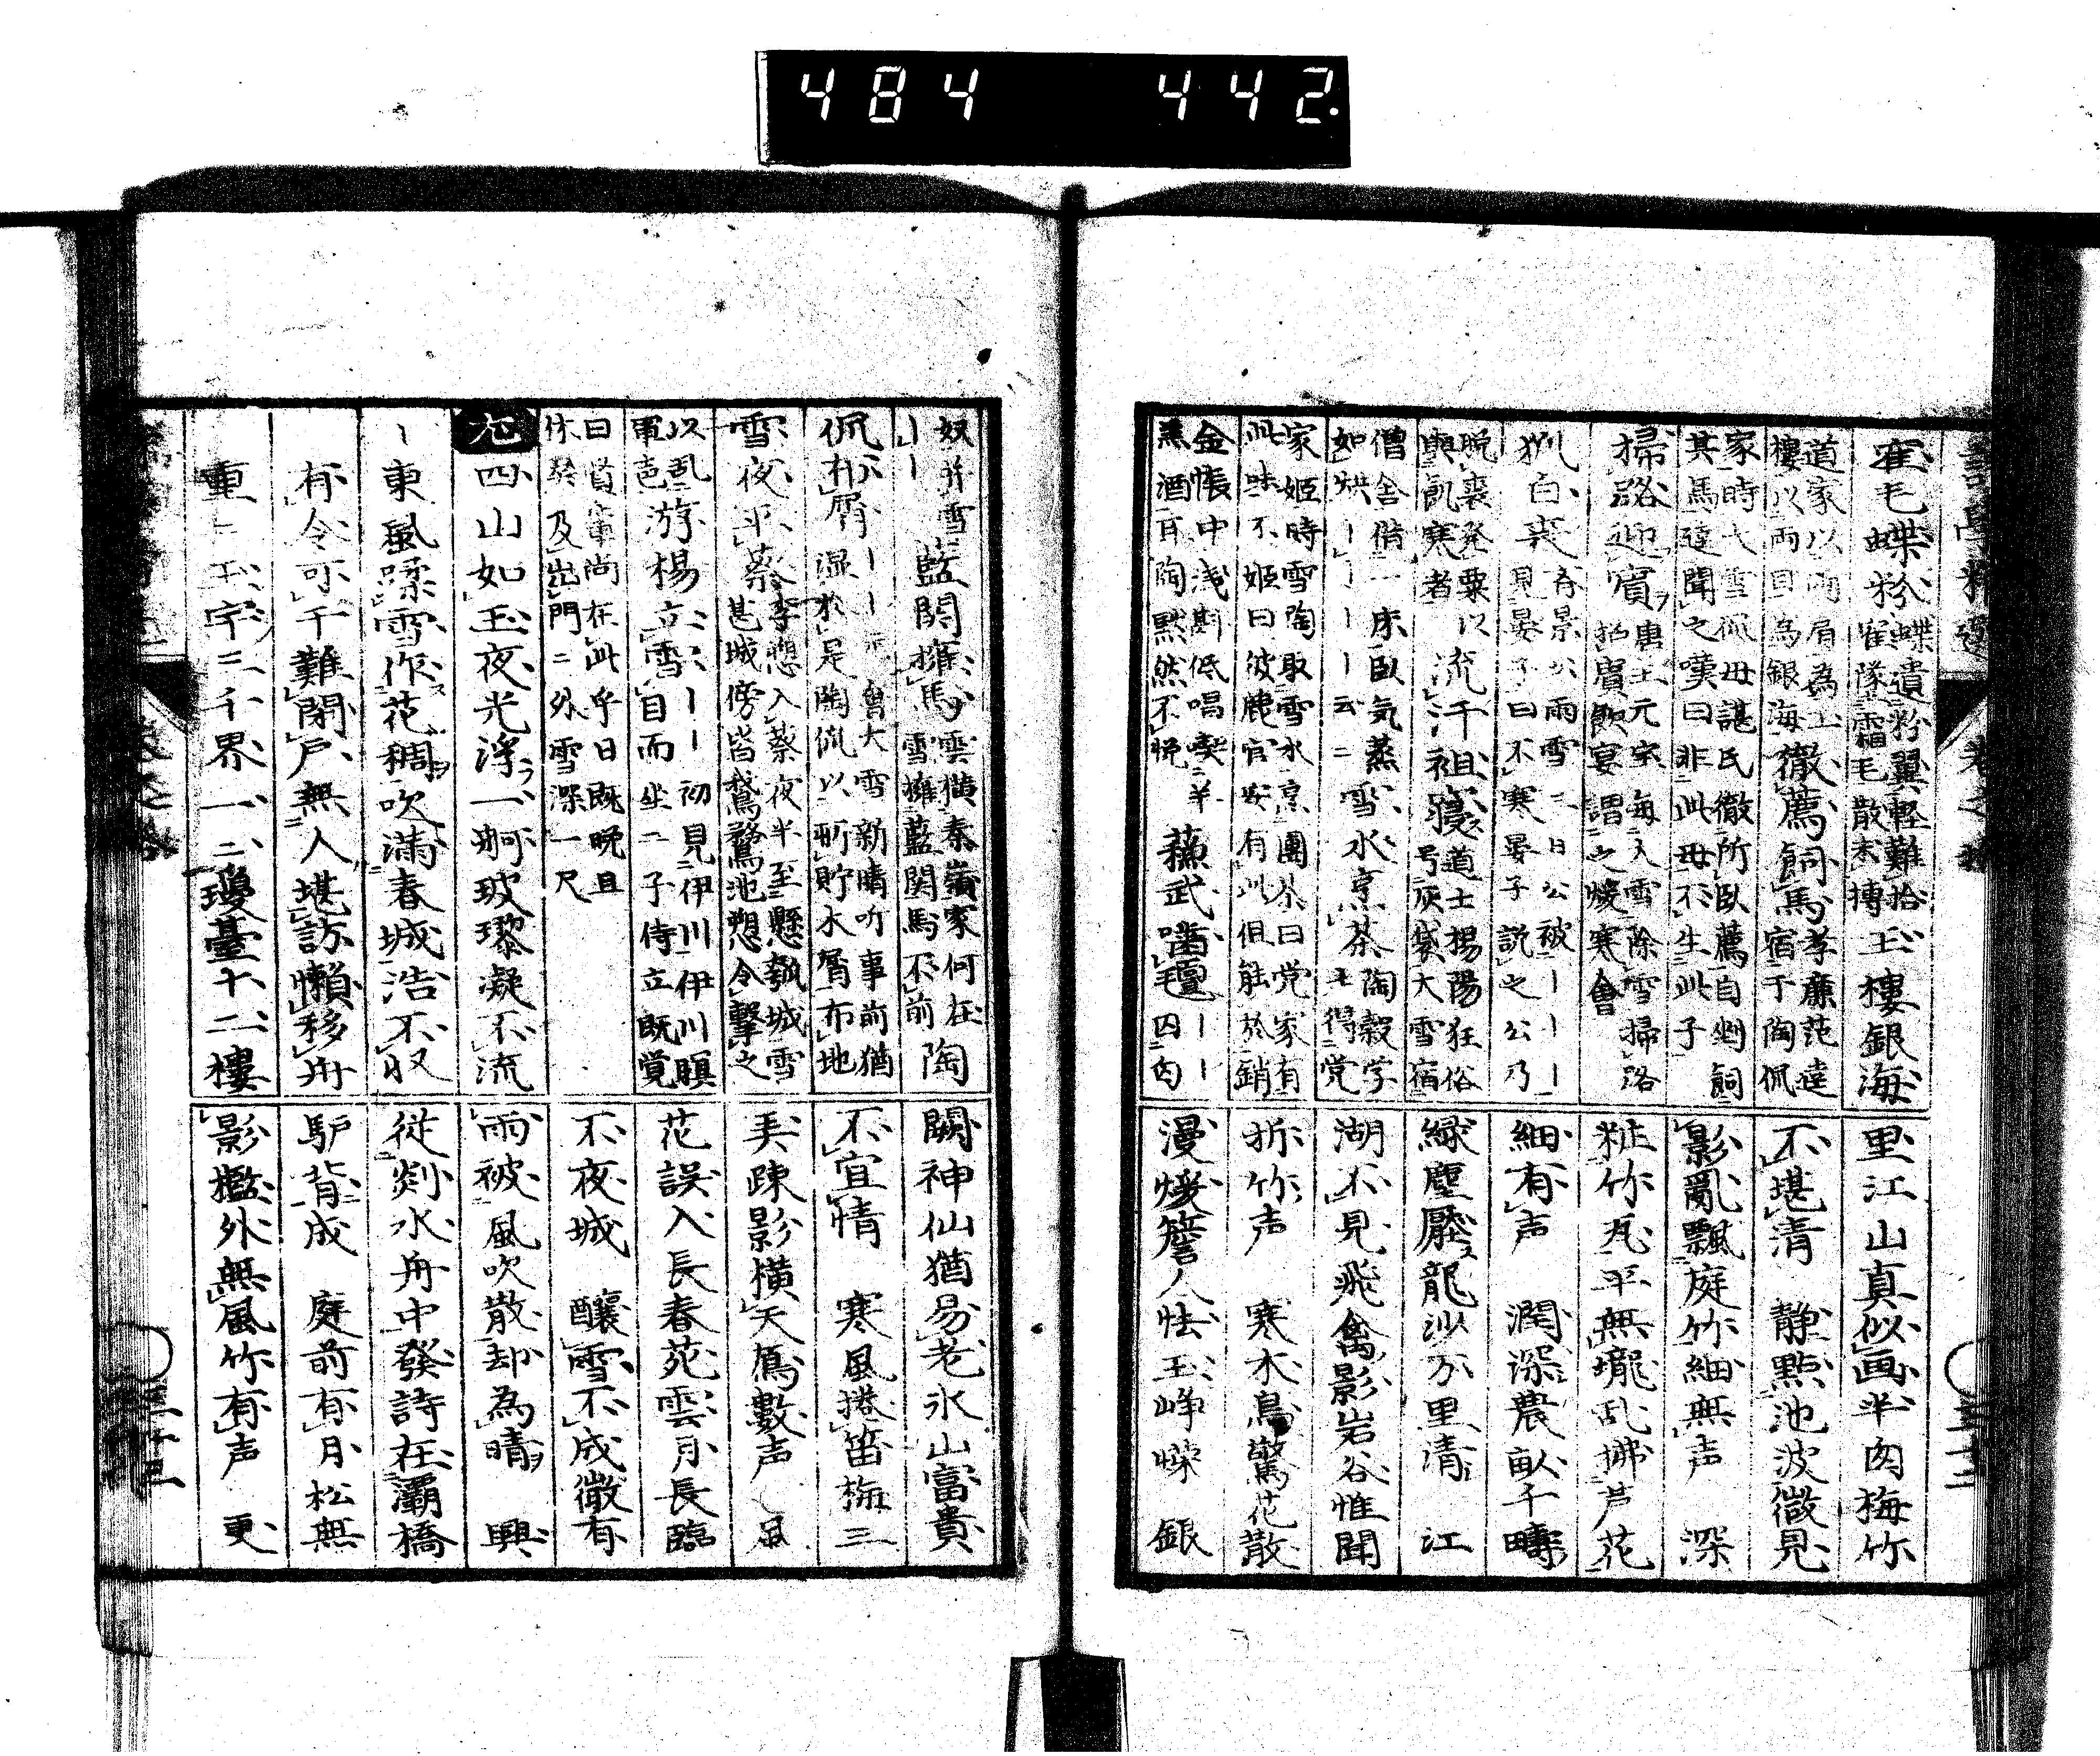 484 442
崔毛蝶粉 蝶遺粉翼軽難拾 崔隊霜毛散未摶 玉樓銀海
道家以両肩為玉樓以両目為銀海 徹薦飼馬 孝廉范逵宿于陶侃
家時大雪侃母諶氏徹所臥薦自剉飼其馬逵聞之嘆曰非此母不生此子
掃路迎賓 唐王元宝毎大雪除雪掃路 招賓飲宴謂之煖寒會
狐白裘 斉景公雨雪三日公被｜｜｜ 見晏子曰不寒晏子説之公乃
脱裘発粟以與飢寒者 流汗袒寝 道士楊陽狂俗号灰袋大雪宿
僧舎借一床臥気蒸如炊｜｜｜｜云々 雪水烹茶 陶穀学士得党
家姫時雪陶取雪水烹團茶曰党家有此味不姫曰彼麁官安有此但能於銷
金帳中浅斟低唱喫羊羔酒耳陶黙然不悦 蘓武噛氊 ｜｜匈
奴并雪｜｜ 藍関擁馬 雲横秦嶺家何在 雪擁藍関馬不前 陶
侃朮屑 ｜｜｜會大雪新晴听事前猶湿於是陶侃以所貯木屑布地
雪夜平蔡 李愬入蔡夜半至懸瓠城雪甚城傍皆鵞鶩池愬令撃之
以乱軍声 游楊立雪 ｜｜初見伊川伊川瞑目而坐二子侍立既覚
曰賢輩尚在此乎日既晩且休矣及出門々外雪深一尺
四山如玉夜光浮 一舸玻瓈凝不流
東風蹂雪作花稠 吹満春城浩不収
有令可干難閉戸 無人堪訪懶移舟
重々玉宇三千界 一々瓊臺十二樓
里江山真似画 半肉梅竹
不堪清 静點池波微見
影亂飄庭竹細無声 深
粧竹瓦平無壠乱拂芦花
細有声 潤深農畝千疇
緑塵壓龍沙万里清 江
湖不見飛禽影岩谷惟聞
折竹声 寒木鳥驚花散
漫煖簷人怯玉崢嶸 銀
闕神仙猶易老氷山富貴
不宜情 寒風捲笛梅三
弄踈影横天鳫數声 風
花誤入長春苑雲月長臨
不夜城 釀雪不成微有
雨被風吹散却為晴 興
従剡水舟中發詩在灞橋
馿背成 庭前有月松無
影檻外無風竹有声 更